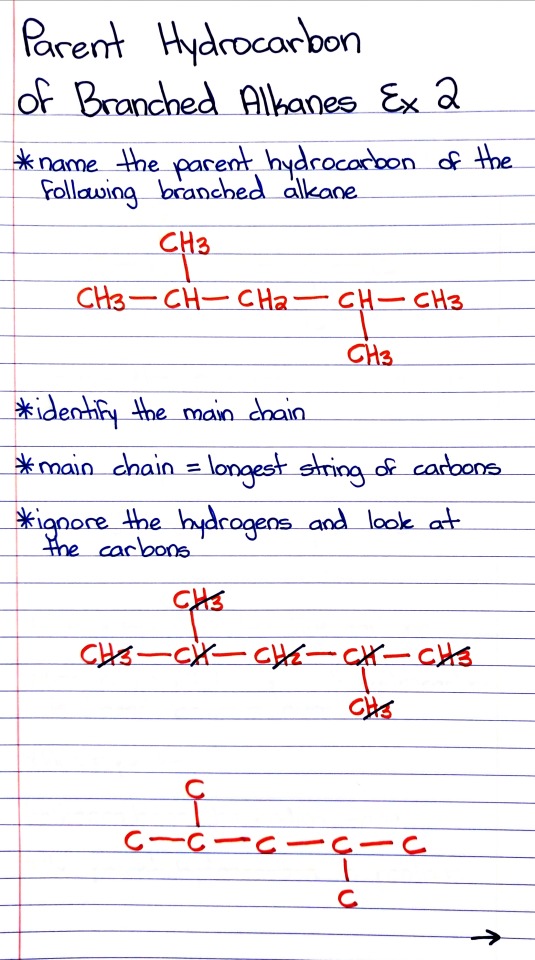 Parent Hydrocarbon
of Branched Alkanes Ex 2
*name the parent hydrocarbon of the
following branched alkane
CH3
|
CH3—CH—CH2—CH—CH3
|
CH3
*identify the main chain
*main chain = longest string of carbons
*ignore the hydrogens and look at
the carbons
CH3
|
CH3—CH—CH2—CH—CH3
|
CH3
C
|
C—C—C—C—C
|
C
→